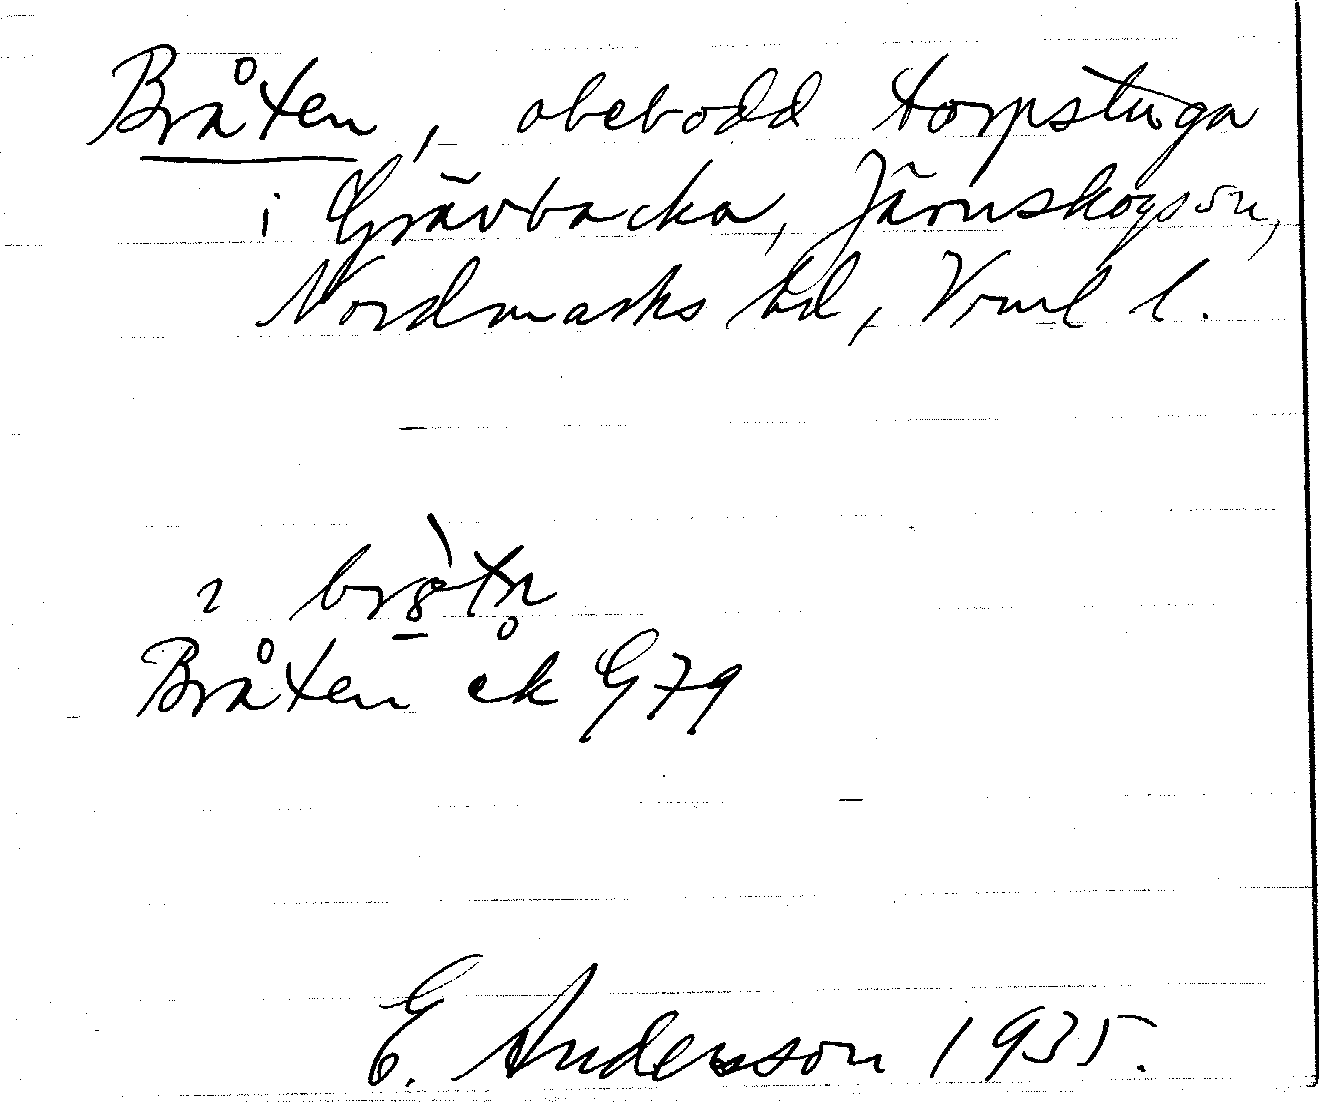 Bråten, obebodd torpstuga
i Grävbacka, Järnskogs sn,
Nordmarks hd, Vrml l.
2
Bråten ek G79
E. Andersson 1935.